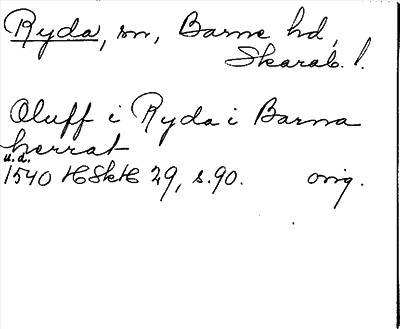 Ryda, sn, Barne hd,
Skarab. l.
Oluff i Ryda i Barna
herrat
u.d.
1540 HSkH 29, s.90. orig.